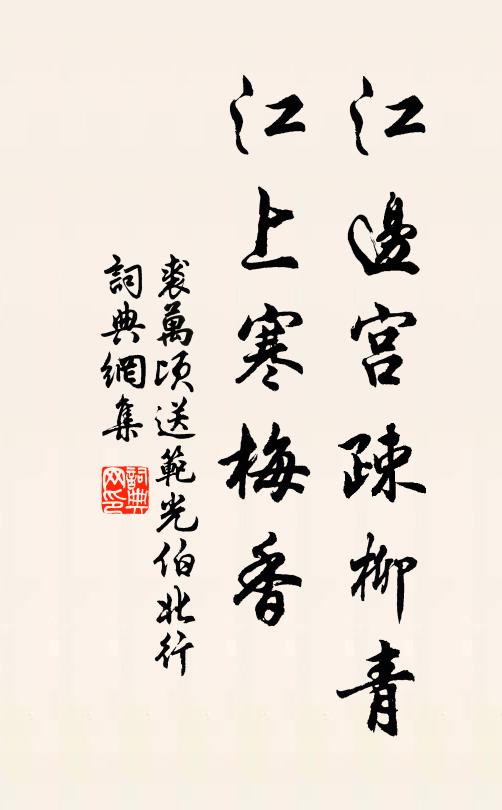 江邊宮疎柳青
江上寒梅香
裘萬頃送範光伯北行
詞典網集
詞典网印